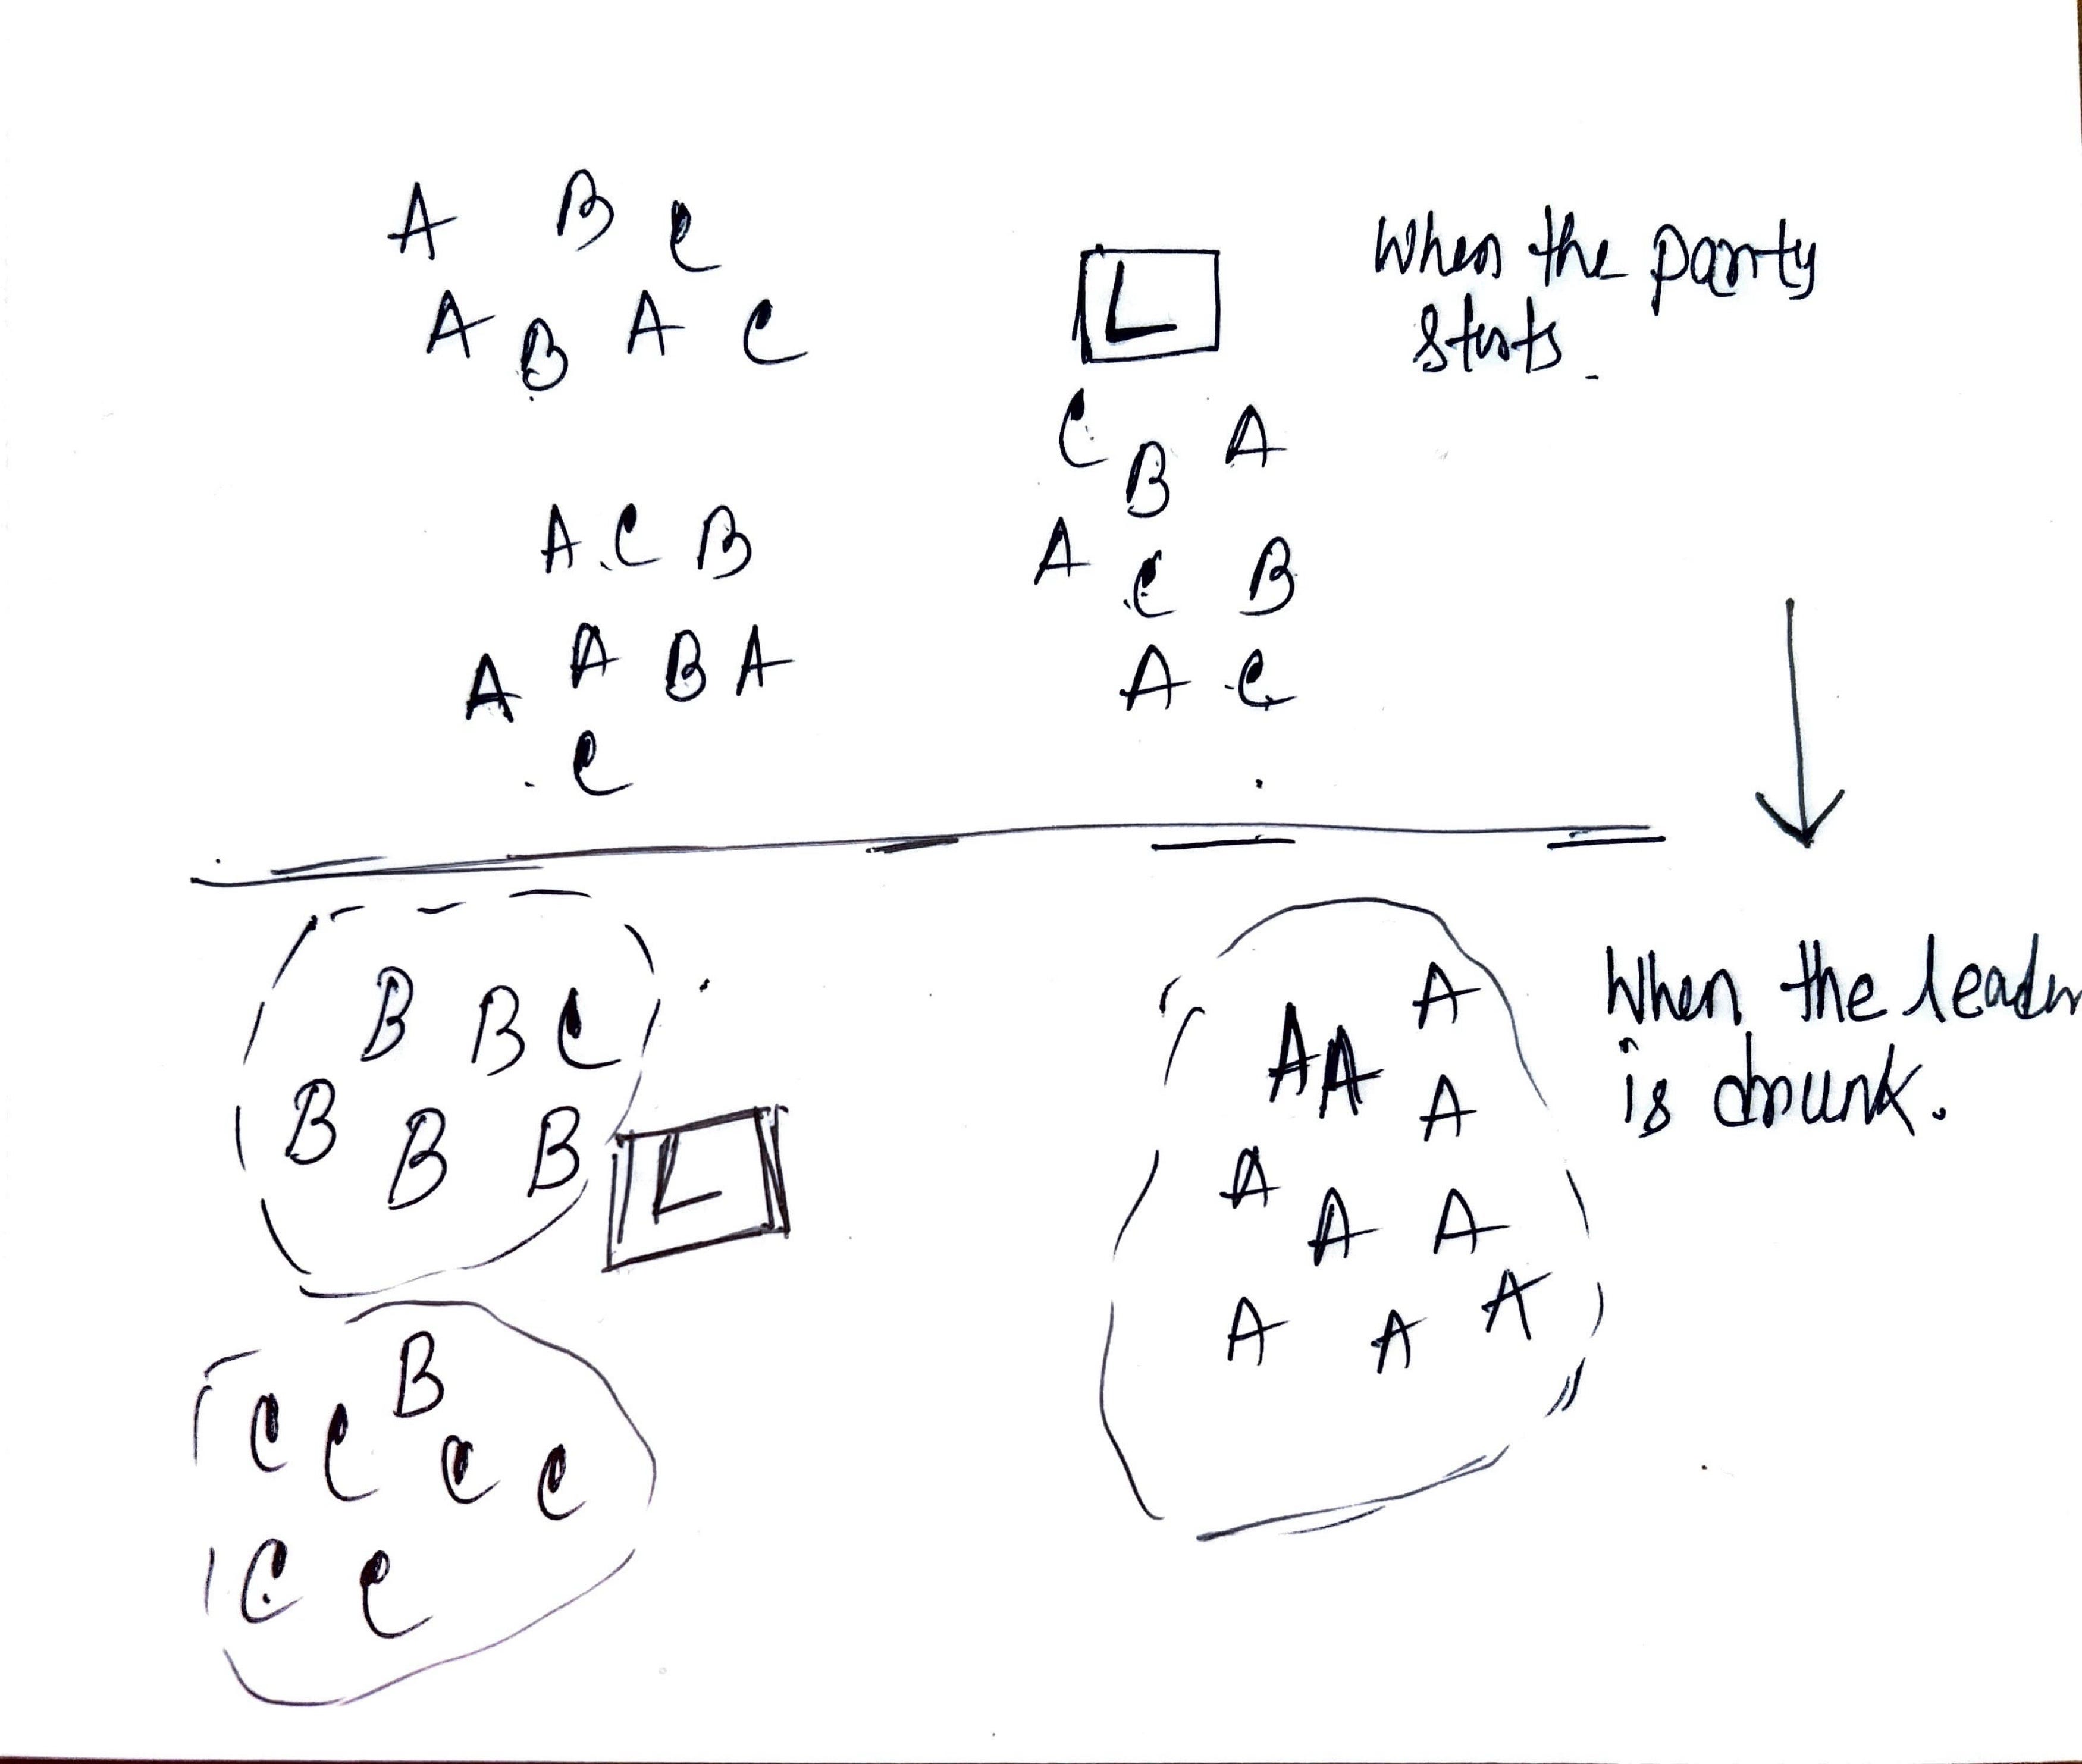 A B C
A B A C
L
When the party
starts.
C B A
A C B
A C
A C B
A A B A
C
B B C
B B B
L
A
A A
A
A
A A
A A A
When the leader
is drunk.
B
C C C C
C C